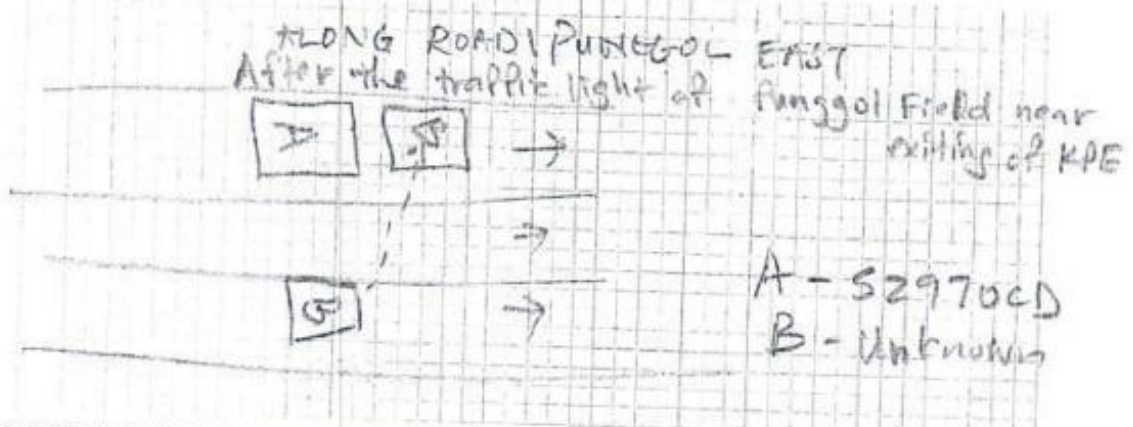 ALONG ROAD \ PUNEGOL EAST
After the traffic light of Punggol Field near
exiting of KPE
A
B
A - S2970CD
B - Unknown